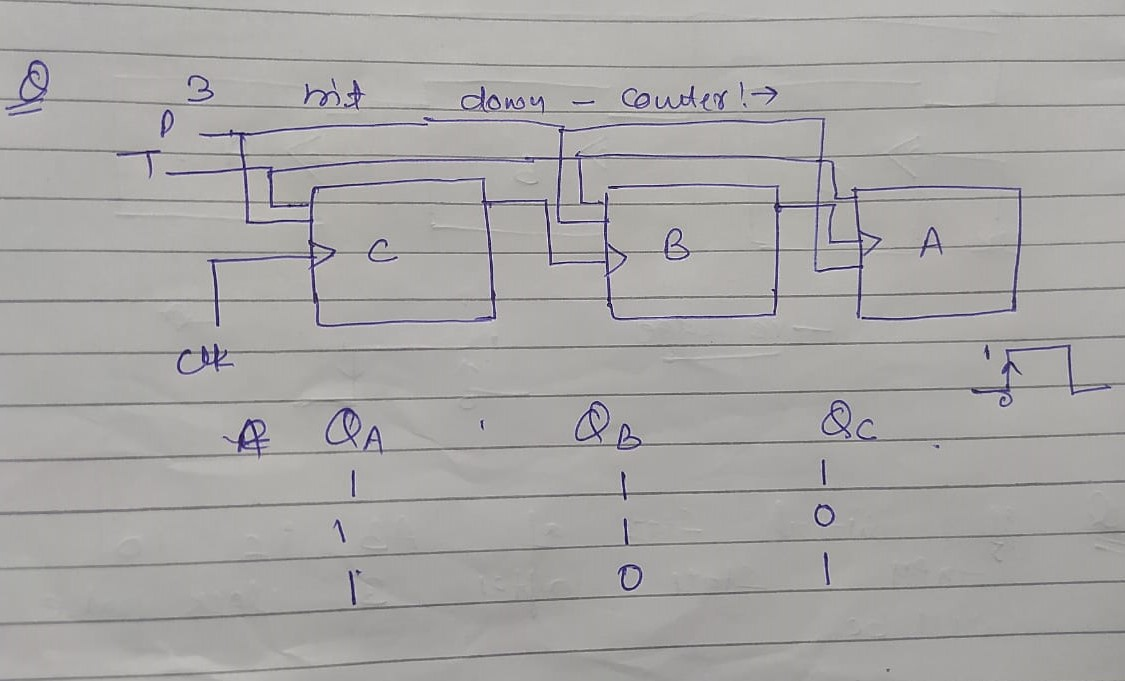 Q 3 bit down - couter! →
P
T
C B A
Clk
1
0
QA QB QC
1 1 1
1 1 0
1 0 1